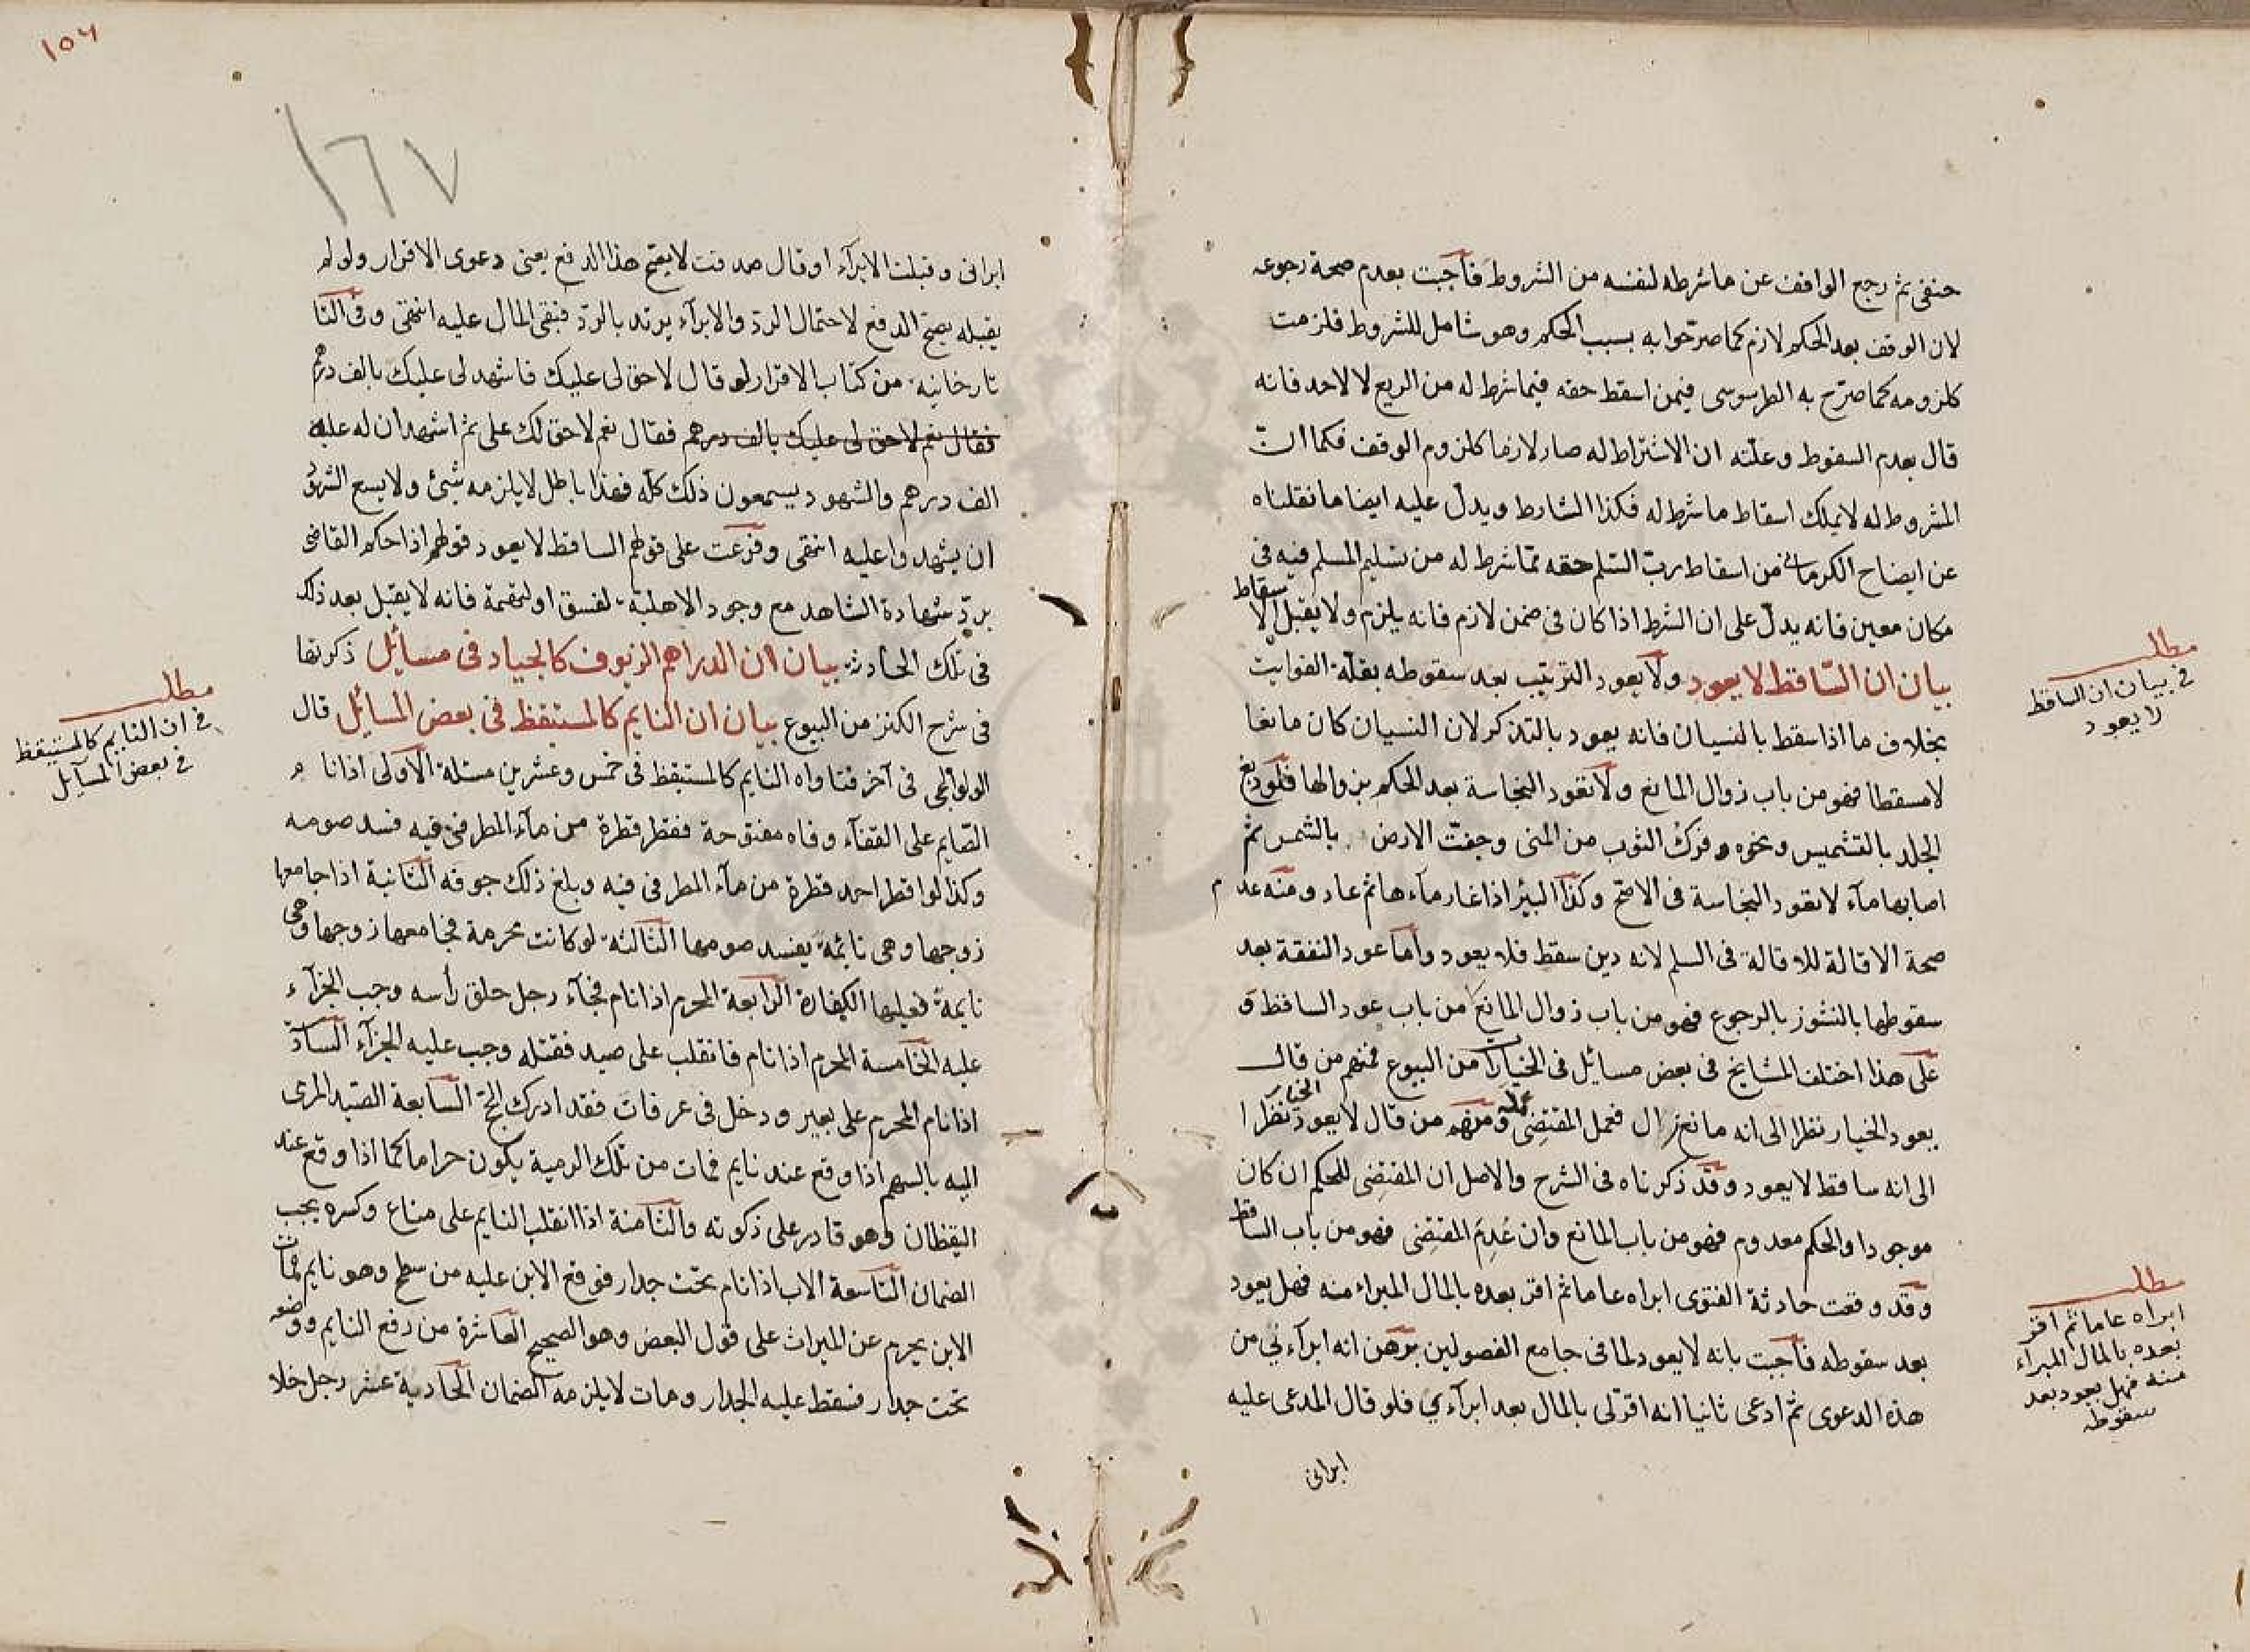 حنفى ثم رجع الواقف عن ما شرطه لنفسه من الشروط فأجبت بعدم صحة رجوعه
لان الوقف بعد الحكم لازم كما صرحوا به بسبب الحكم وهو شامل للشروط فلزمت
كلزومه كما صرّح به الطرسوسى فيمن اسقط حقه فيما شرط له من الريع لا لاحد فانه
قال بعدم السقوط وعلته ان الاشتراط له صار لازما كلزوم الوقف فكما انّ
المشروط له لا يملك اسقاط ما شرط له فكذا الشارط ويدل عليه ايضا ما نقلناه
عن ايضاح الكرمانى من اسقاط ربّ السّلم حقه ممّا شرط له من تسليم المسلم فيه فى
مكان معين فانه يدلّ على ان الشرط اذا كان فى ضمن لازم فانه يلزم ولا يقبل الاسقاط
بيان ان السّاقط لا يعود ولا يعود الترتيب بعد سقوطه بقلّة الفوايت
بخلاف ما اذا سقط بالنسيان فانه يعود بالتذكر لان النسيان كان مانعا
لا مسقطا فهو من باب زوال المانع ولا تعود النجاسة بعد الحكم بزوالها فلو دبغ
الجلد بالتشميس ونحوه وفرك الثوب من المنى وجفّت الارض بالشمس ثم
اصابها مآء لا تعود النجاسة فى الاصح وكذا البئر اذا غار مآءها ثم عاد ومنه عدم
صحة الاقالة للاقالة فى السلم لانه دين سقط فلا يعود وأما عود النفقة بعد
سقوطها بالنشوز بالرجوع فهو من باب زوال المانع لا من باب عود الساقط و
على هذا اختلف المشايخ فى بعض مسائل فى الخيارات من البيوع فمنهم من قال
يعود الخيار نظرا الى انه مانع زال فعمل المقتضى عمله ومنهم من قال لا يعود الخيار نظرا
الى انه ساقط لا يعود وقد ذكرناه فى الشرح والاصل ان المقتضى للحكم ان كان
موجودا والحكم معدوم فهو من باب المانع وان عُدِمَ المقتضى فهو من باب الساقط
وقد وقعت حادثة الفتوى ابراه عاما ثم اقر بعده بالمال المبراء منه فهل يعود
بعد سقوطه فأجبت بانه لا يعود لما فى جامع الفصولين برهن انه ابرآءنى من
هذه الدعوى ثم ادعى ثانيا انه اقر لى بالمال بعد ابرآءى فلو قال المدعى عليه
ابرانى
مطلب
فى بيان ان الساقط
لا يعود
مطلب
ابراه عاما ثم اقر
بعده بالمال المبراء
منه فهل يعود بعد
سقوطه
١٥٦
١٦٧
ابرانى وقبلت الابرآء او قال صدقت لا يصح هذا الدفع يعنى دعوى الاقرار ولو لم
يقبله يصح الدفع لاحتمال الردّ والابرآء يرتد بالردّ فبقى المال عليه انتهى وفى التا
تارخانيه من كتاب الاقرار لو قال لا حق لى عليك فاشهد لى عليك بالف درهم
فقال نعم لا حق لى عليك بالف درهم فقال نعم لا حق لك على ثم اشهد ان له عليه
الف درهم والشهود يسمعون ذلك كله فهذا باطل لا يلزمه شئ ولا يسع الشهود
ان يشهدوا عليه انتهى وفرّعت على قولهم الساقط لا يعود قولهم اذا حكم القاضى
بردّ شهادة الشاهد مع وجود الاهلية لفسق او لتهمة فانه لا يقبل بعد ذلك
فى تلك الحادثة بيان ان الدراهم الزيوف كالجياد فى مسائل ذكرتها
فى شرح الكنز من البيوع بيان ان النايم كالمستيقظ فى بعض المسائل قال
الولوالجى فى آخر فتاواه النايم كالمستيقظ فى خمس وعشرين مسئلة الاولى اذا نام
الصّايم على القفآء وفاه مفتوحة فقطر قطرة من مآء المطر فى فيه فسد صومه
وكذا لو اقطر احد قطرة من مآء المطر فى فيه وبلغ ذلك جوفه الثانية اذا جامعها
زوجها وهى نايمة يفسد صومها الثالثة لو كانت محرمة فجامعها زوجها وهى
نايمة فعليها الكفارة الرابعة المحرم اذا نام فجآء رجل حلق رأسه وجب الجزآء
عليه الخامسة المحرم اذا نام فانقلب على صيد فقتله وجب عليه الجزآء السّادسة
اذا نام المحرم على بعير ودخل فى عرفات فقد ادرك الحج السّابعة الصّيد المرمى
اليه بالسهم اذا وقع عند نايم فمات من تلك الرمية يكون حراما كما اذا وقع عند
اليقظان وهو قادر على ذكوته والثامنة اذا انقلب النايم على متاع وكسره يجب
الضمان التاسعة الاب اذا نام تحت جدار فوقع الابن عليه من سطح وهو نايم فمات
الابن يحرم عن الميراث على قول البعض وهو الصحيح العاشرة من رفع النايم ووضعه
تحت جدار فسقط عليه الجدار ومات لا يلزمه الضمان الحادية عشر رجل خلا
مطلب
فى ان النايم كالمستيقظ
فى بعض المسآيل